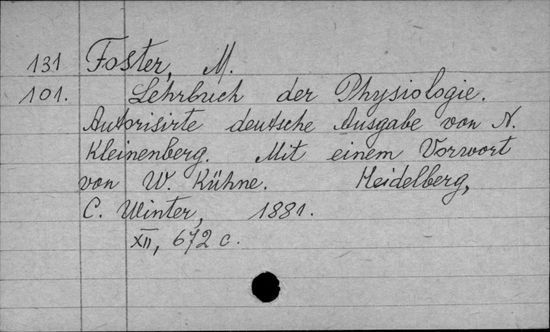 131 Foster, M.
101. Lehrbuch der Physiologie.
Autorisirte deutsche Ausgabe von N.
Kleinenberg. Mit einem Vorwort
von W. Kühne. Heidelberg,
C. Winter, 1881.
XII, 672 c.